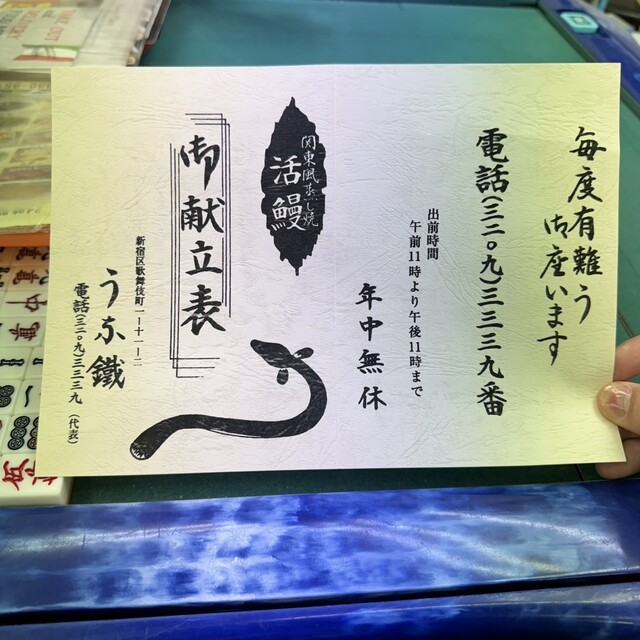 毎度有難う
御座います
電話(三二〇九)三三三九番
出前時間
午前11時より午後11時まで
年中無休
関東風むし焼
活鰻
御献立表
新宿区歌舞伎町一ー十一ー二
うな鐵
電話(三二〇九)三三三九(代表)